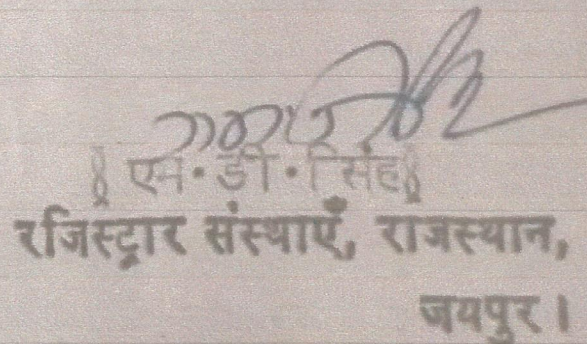 एम·डी·सिंह
रजिस्ट्रार संस्थाएँ, राजस्थान,
जयपुर।